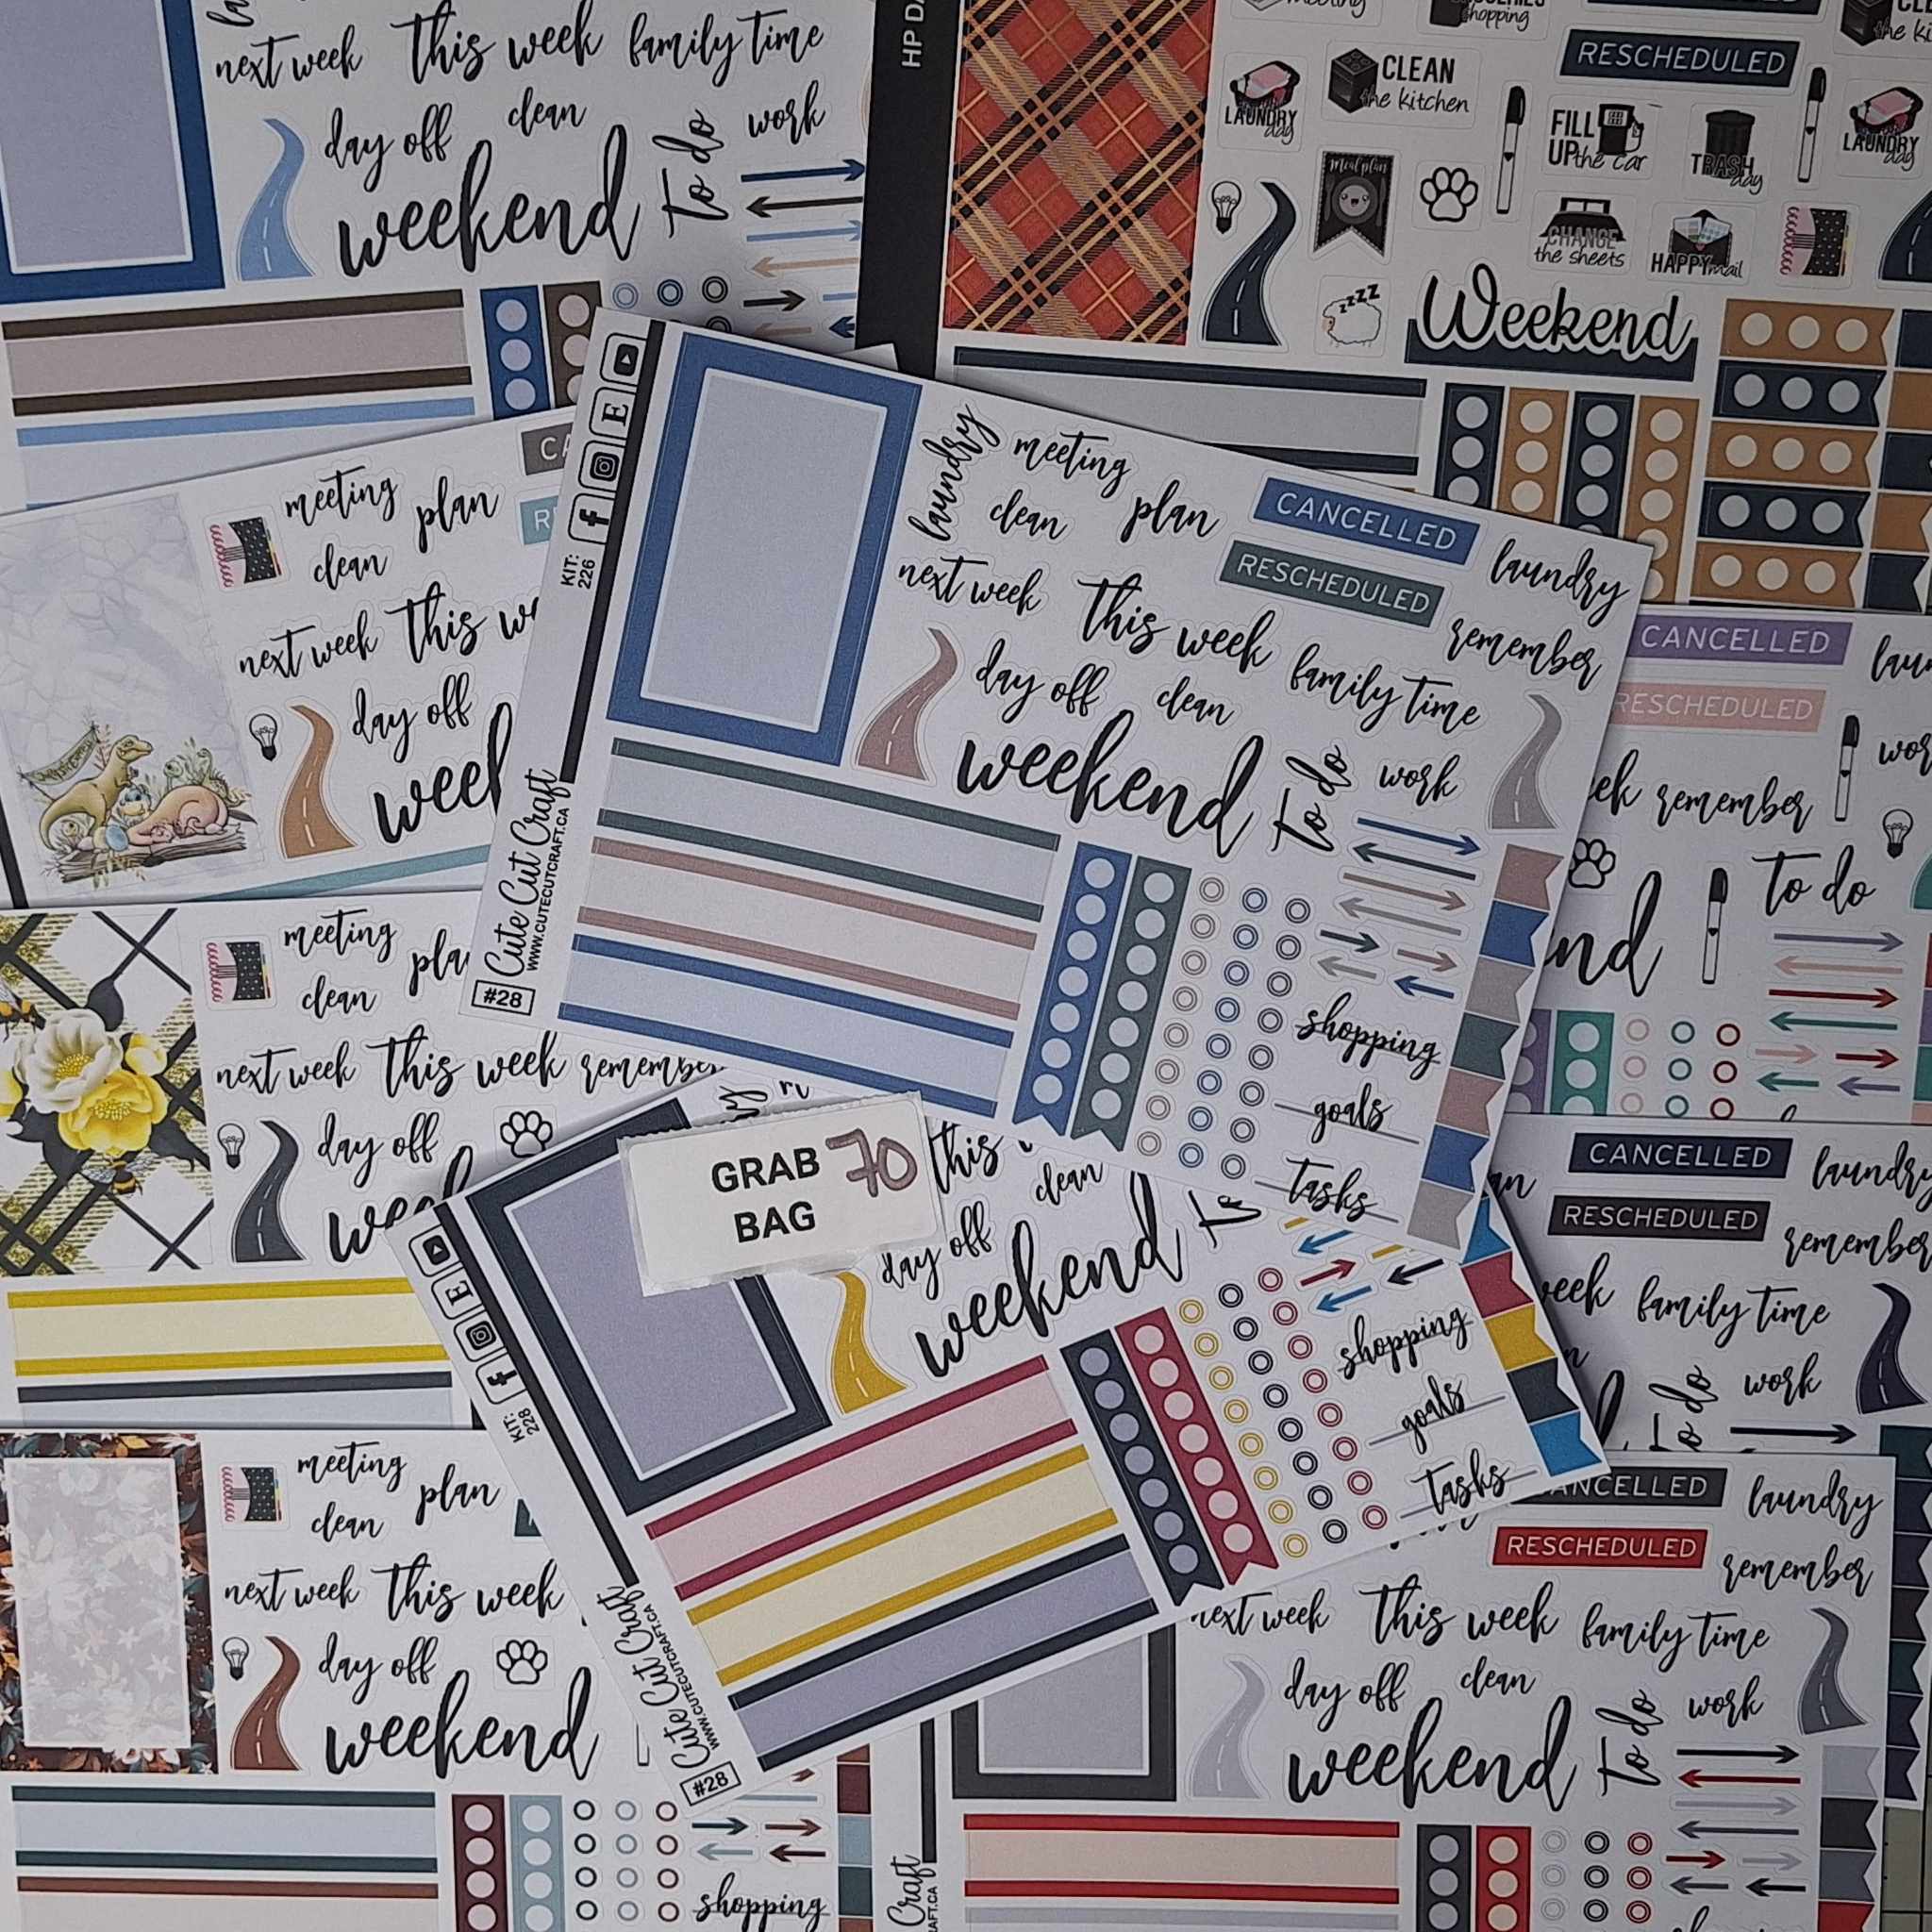 next week This week family Time
day off clean work
weekend To do
HP
shopping
RESCHEDULED
CLEAN
the kitchen
LAUNDRY
day
FILL
UP the car
TRASH
day
LAUNDRY
day
Meal plan
CHANGE
the sheets
HAPPY mail
zzzz
Weekend
meeting plan
clean
next week This
day off
KIT:
226
Cute Cut Craft
WWW.CUTECUTCRAFT.CA
#28
laundry meeting
clean plan
CANCELLED
RESCHEDULED
laundry
next week This week family Time
remember
day off clean
weekend To do work
shopping
goals
tasks
CANCELLED
RESCHEDULED
remember
To do
meeting
clean
next week This week remember
day off
GRAB
BAG
70
This
clean
day off
weekend
shopping
goals
tasks
KIT:
228
Cute Cut Craft
WWW.CUTECUTCRAFT.CA
#28
CANCELLED
laundry
RESCHEDULED
remember
week family Time
To do work
meeting plan
clean
next week This week
day off
weekend
shopping
laundry
RESCHEDULED
remember
next week This week family Time
day off clean
weekend To do work
Craft